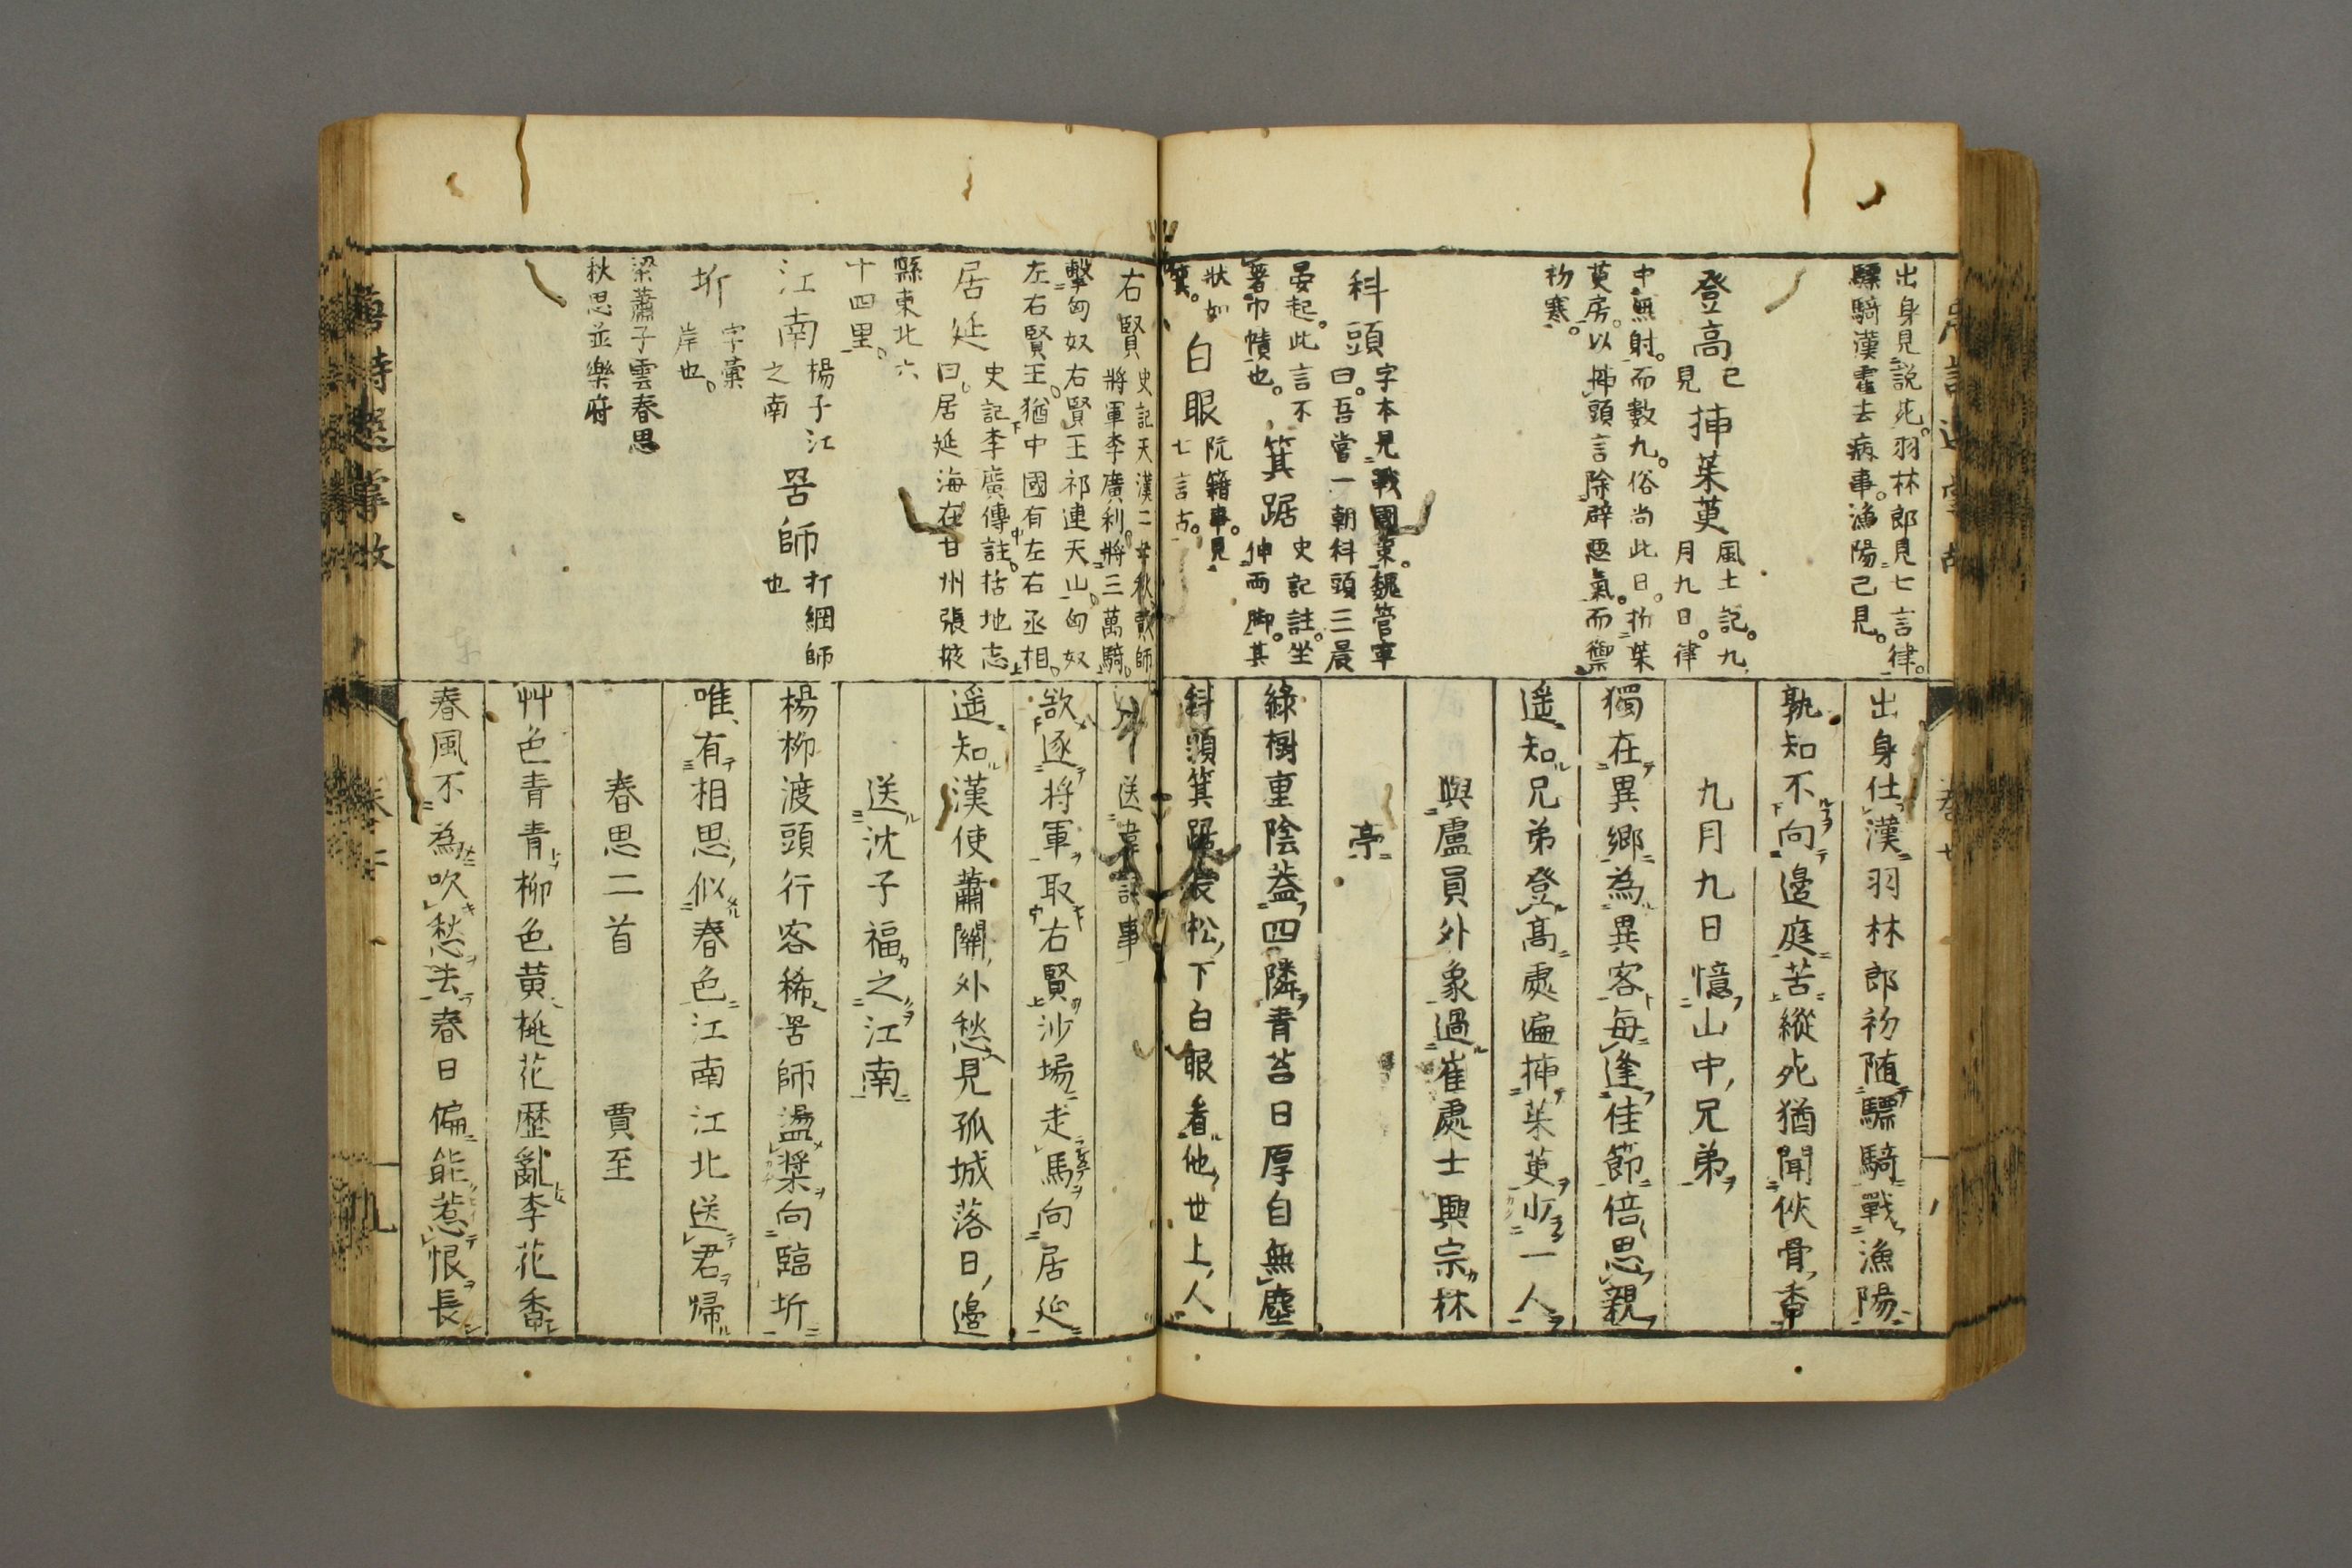 出身見説苑。羽林郎見七言律。
驃騎漢霍去病事。漁陽已見。
登高已見 挿茱萸風土記。九月九日。律
中無射。而數九。俗尚此日。折茱
萸房。以挿頭言除辟惡氣。而禦
初寒。
科頭字本見戰國策。魏管寧曰。吾嘗一朝科頭三晨
晏起。此言不
著巾幘也。 箕踞史記註。坐伸両脚。其
狀如箕。 白眼阮籍事。見七言古。
出身仕漢羽林郎初随驃騎戰漁陽
孰知不向邊庭苦縱死猶聞俠骨香
九月九日憶山中兄弟
獨在異郷為異客毎逢佳節倍思親
遥知兄弟登高處遍挿茱萸少一人
與盧員外象過崔處士興宗林
亭
綠樹重陰蓋四隣青苔日厚自無塵
科頭箕踞長松下白眼看他世上人
右賢史記天漢二年秋貳師將軍李廣利。將三萬騎。
擊匈奴右賢王祁連天山。匈奴
左右賢王。猶中國有左右丞相。
居延史記李廣傳註。括地志曰。居延海在甘州張掖
縣東北六
十四里。
江南楊子江之南 罟師打網師也
圻字彙岸也。
梁蕭子雲春思
秋思並樂府
送韋評事
欲逐将軍取右賢沙場走馬向居延
遥知漢使蕭關外愁見孤城落日邉
送沈子福之江南
楊柳渡頭行客稀罟師盪槳向臨圻
唯有相思似春色江南江北送君帰
春思二首 賈至
艸色青青柳色黄桃花歴亂李花香
春風不為吹愁去春日偏能惹恨長
唐詩選掌故
卷七
九